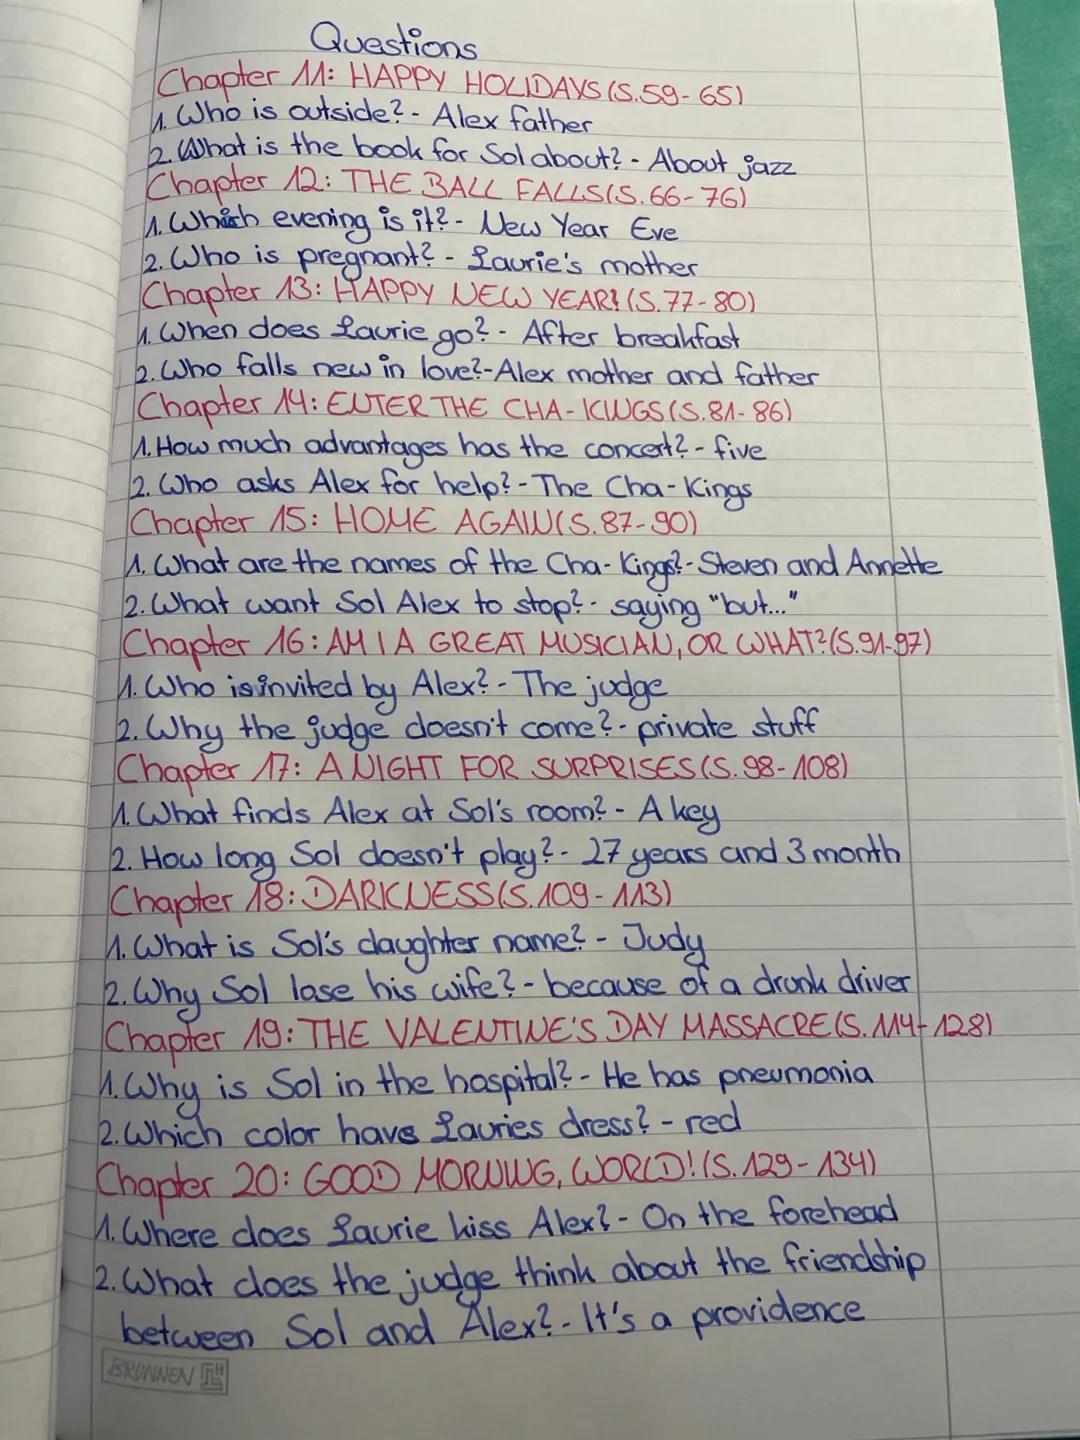 Questions
Chapter 11: HAPPY HOLIDAYS (S.59-65)
1. Who is outside? - Alex father
2. What is the book for Sol about? - About jazz
Chapter 12: THE BALL FALLS (S.66-76)
1. Which evening is it? - New Year Eve
2. Who is pregnant? - Laurie's mother
Chapter 13: HAPPY NEW YEAR! (S.77-80)
1. When does Laurie go? - After breakfast
2. Who falls new in love? - Alex mother and father
Chapter 14: ENTER THE CHA-KINGS (S.81-86)
1. How much advantages has the concert? - five
2. Who asks Alex for help? - The Cha-Kings
Chapter 15: HOME AGAIN (S.87-90)
1. What are the names of the Cha-Kings? - Steven and Annette
2. What want Sol Alex to stop? - saying "but..."
Chapter 16: AM I A GREAT MUSICIAN, OR WHAT? (S.91-97)
1. Who is invited by Alex? - The judge
2. Why the judge doesn't come? - private stuff
Chapter 17: A NIGHT FOR SURPRISES (S.98-108)
1. What finds Alex at Sol's room? - A key
2. How long Sol doesn't play? - 27 years and 3 month
Chapter 18: DARKNESS (S.109-113)
1. What is Sol's daughter name? - Judy
2. Why Sol lose his wife? - because of a drunk driver
Chapter 19: THE VALENTINE'S DAY MASSACRE (S.114-128)
1. Why is Sol in the hospital? - He has pneumonia
2. Which color have Lauries dress? - red
Chapter 20: GOOD MORNING, WORLD! (S.129-134)
1. Where does Laurie kiss Alex? - On the forehead
2. What does the judge think about the friendship
between Sol and Alex? - It's a providence
BRUNNEN